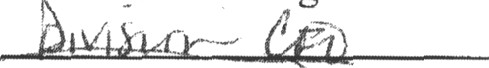 Division CEO